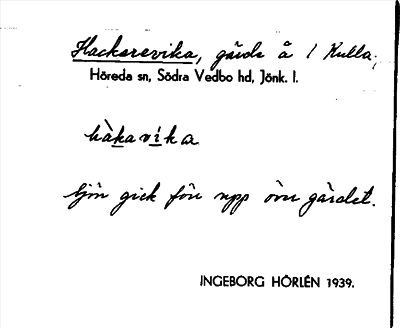 Hackerevika, gärde å 1 Kulla,
Höreda sn, Södra Vedbo hd, Jönk. l.
hàkavika
Sjön gick förr upp över gärdet.
INGEBORG HÖRLÉN 1939.